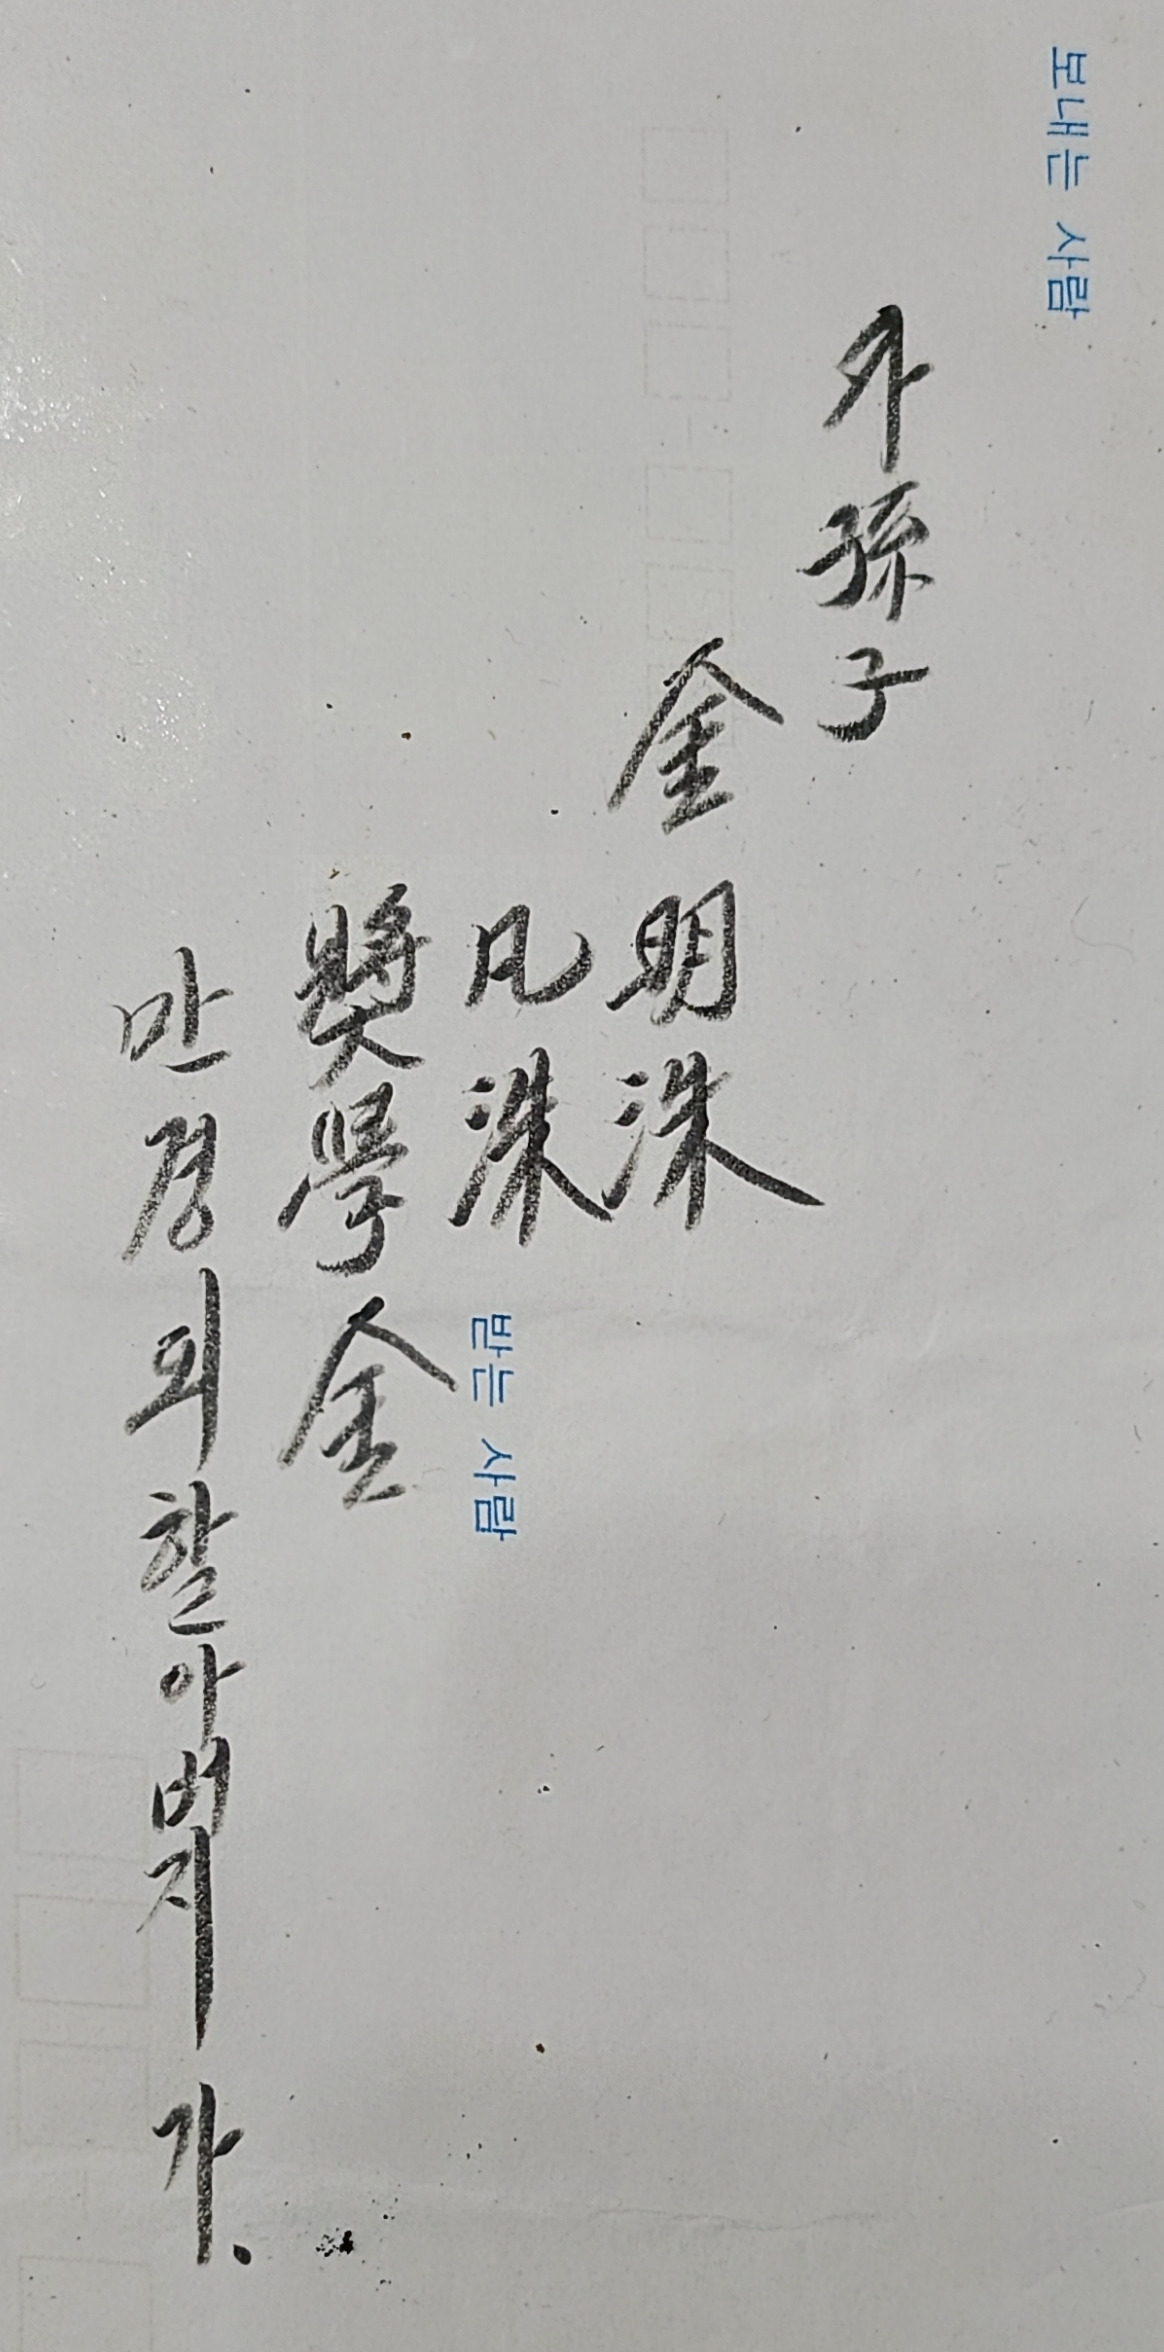 보내는 사람
外孫子
金 明洙
凡洙
받는 사람
奬學金
만경 외할아버지 가.